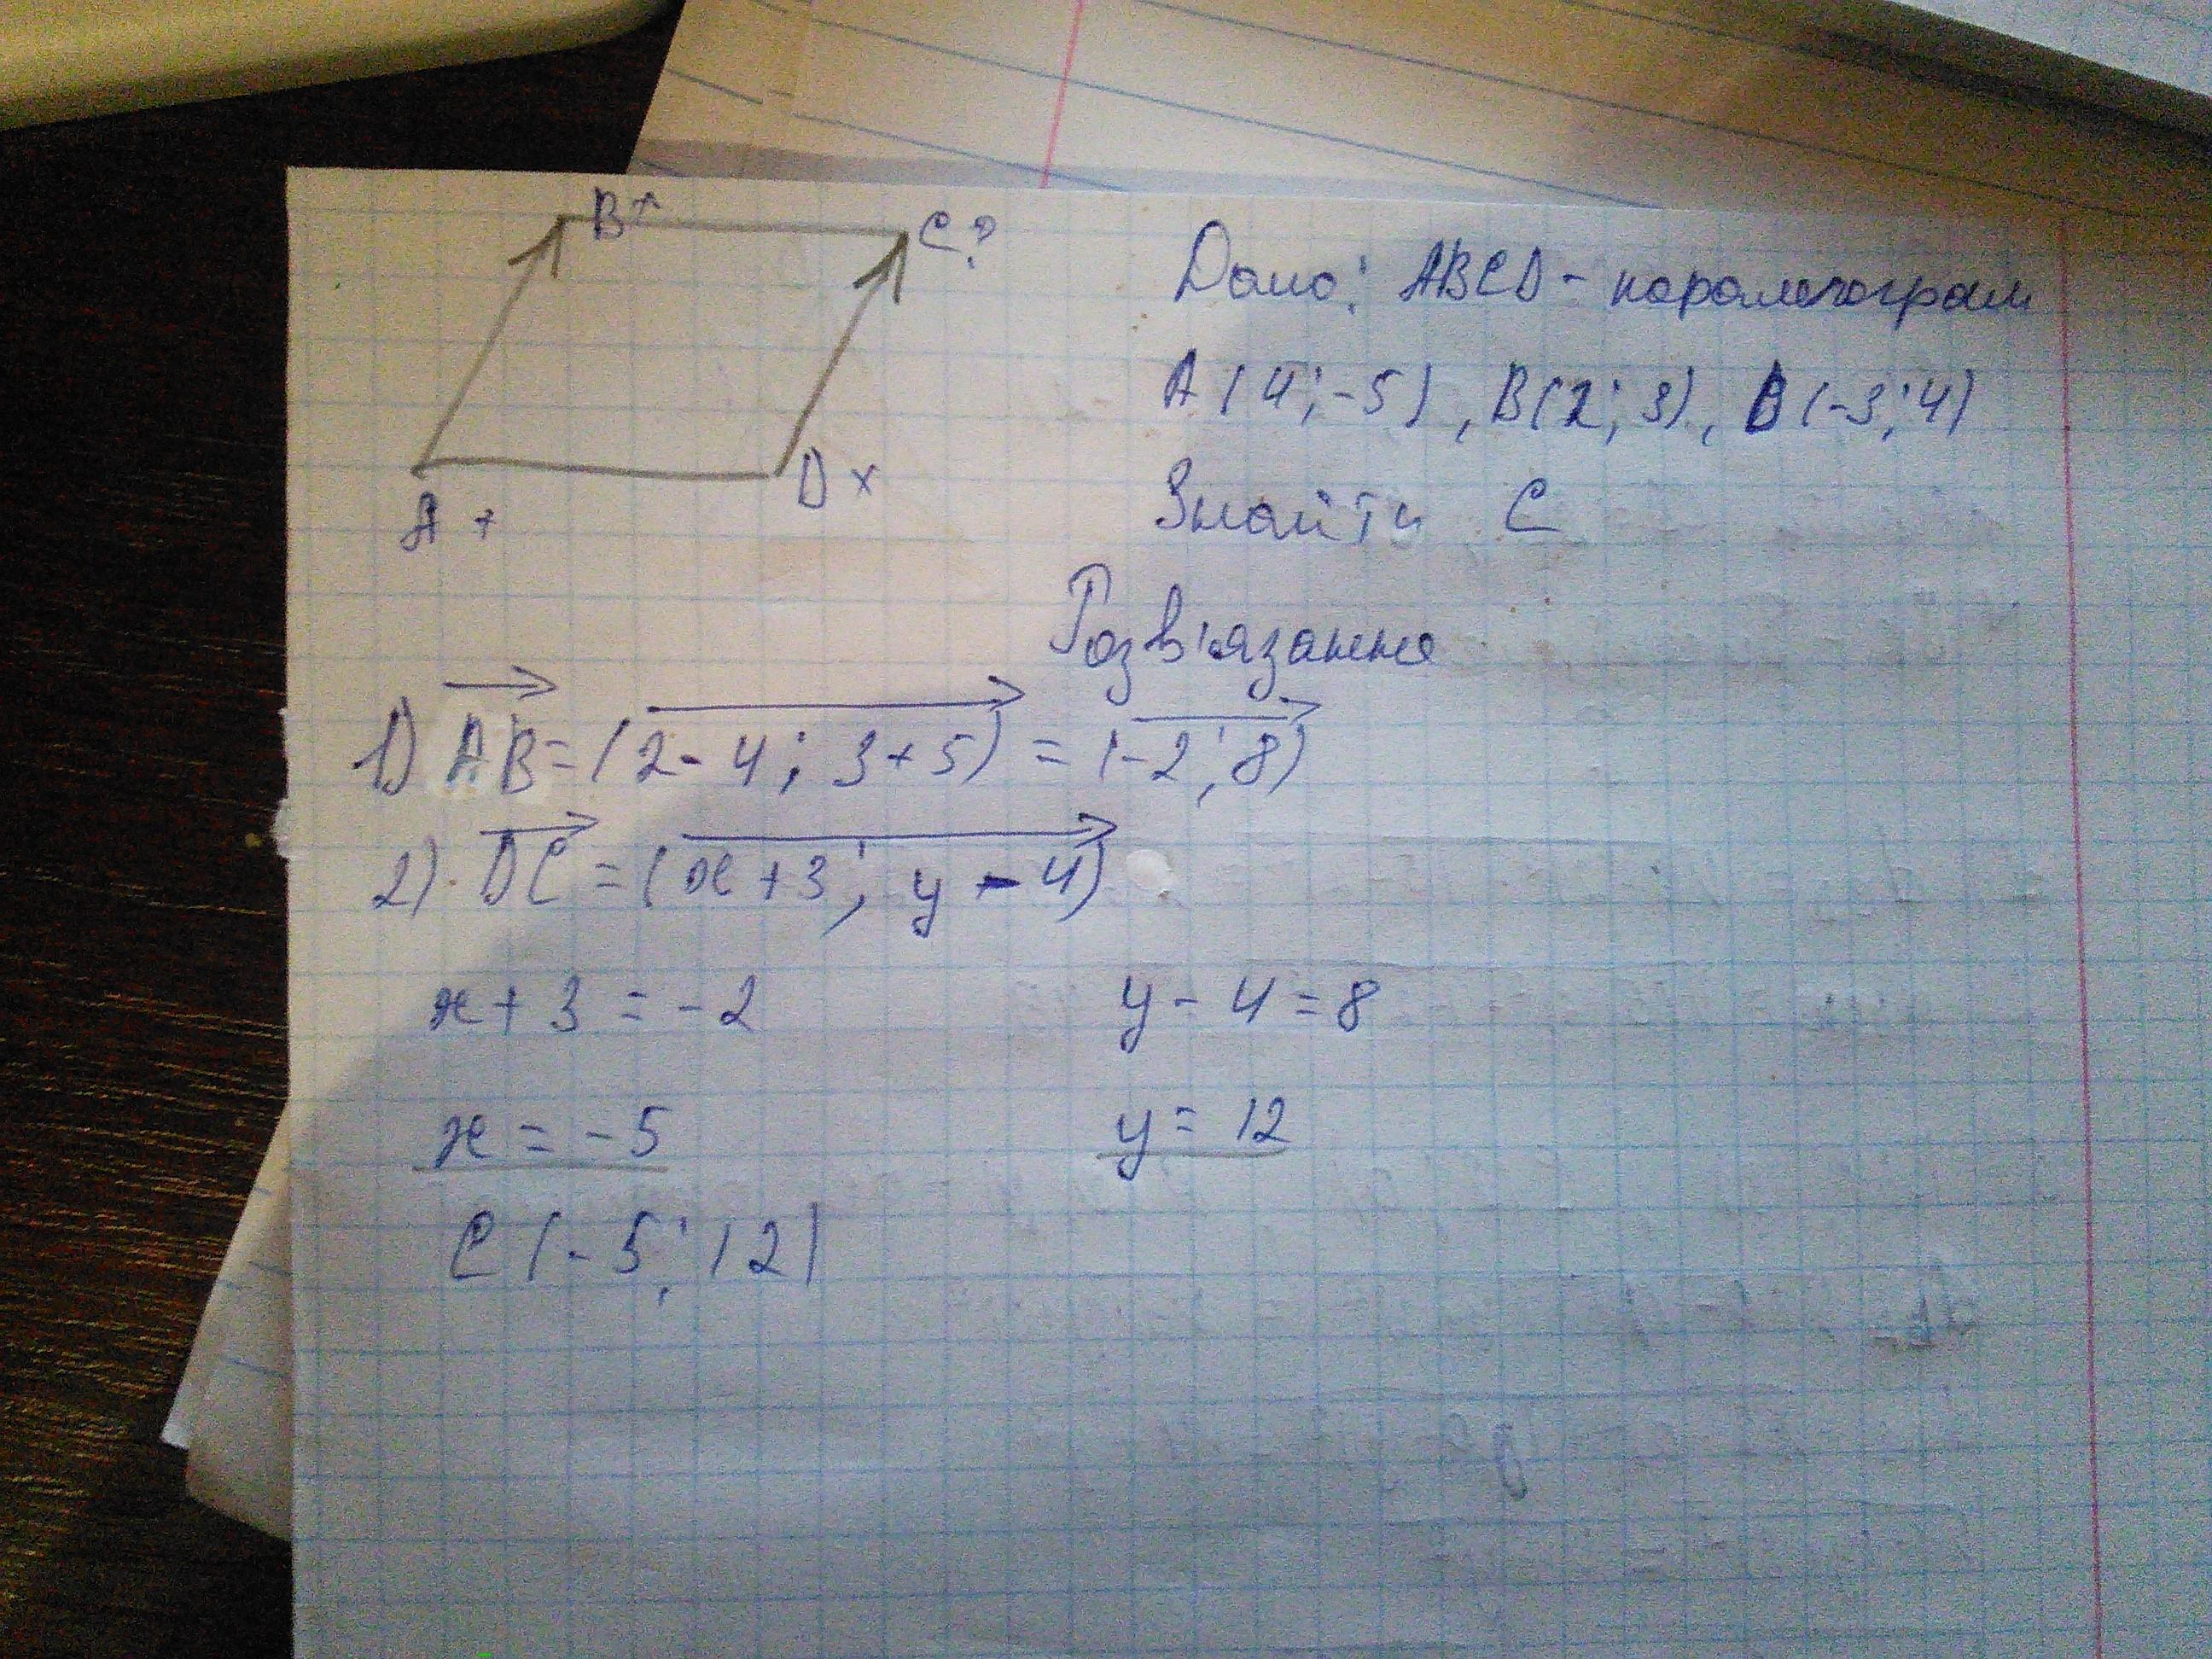 B x
C ?
A +
D x
Дано: ABCD - паралелограм
A (4; -5), B(2; 3), D (-3; 4)
Знайти C
Розв'язання
1) AB = (2 - 4; 3 + 5) = (-2; 8)
2). DC = (x + 3; y - 4)
x + 3 = -2 y - 4 = 8
x = -5 y = 12
C (-5; 12)